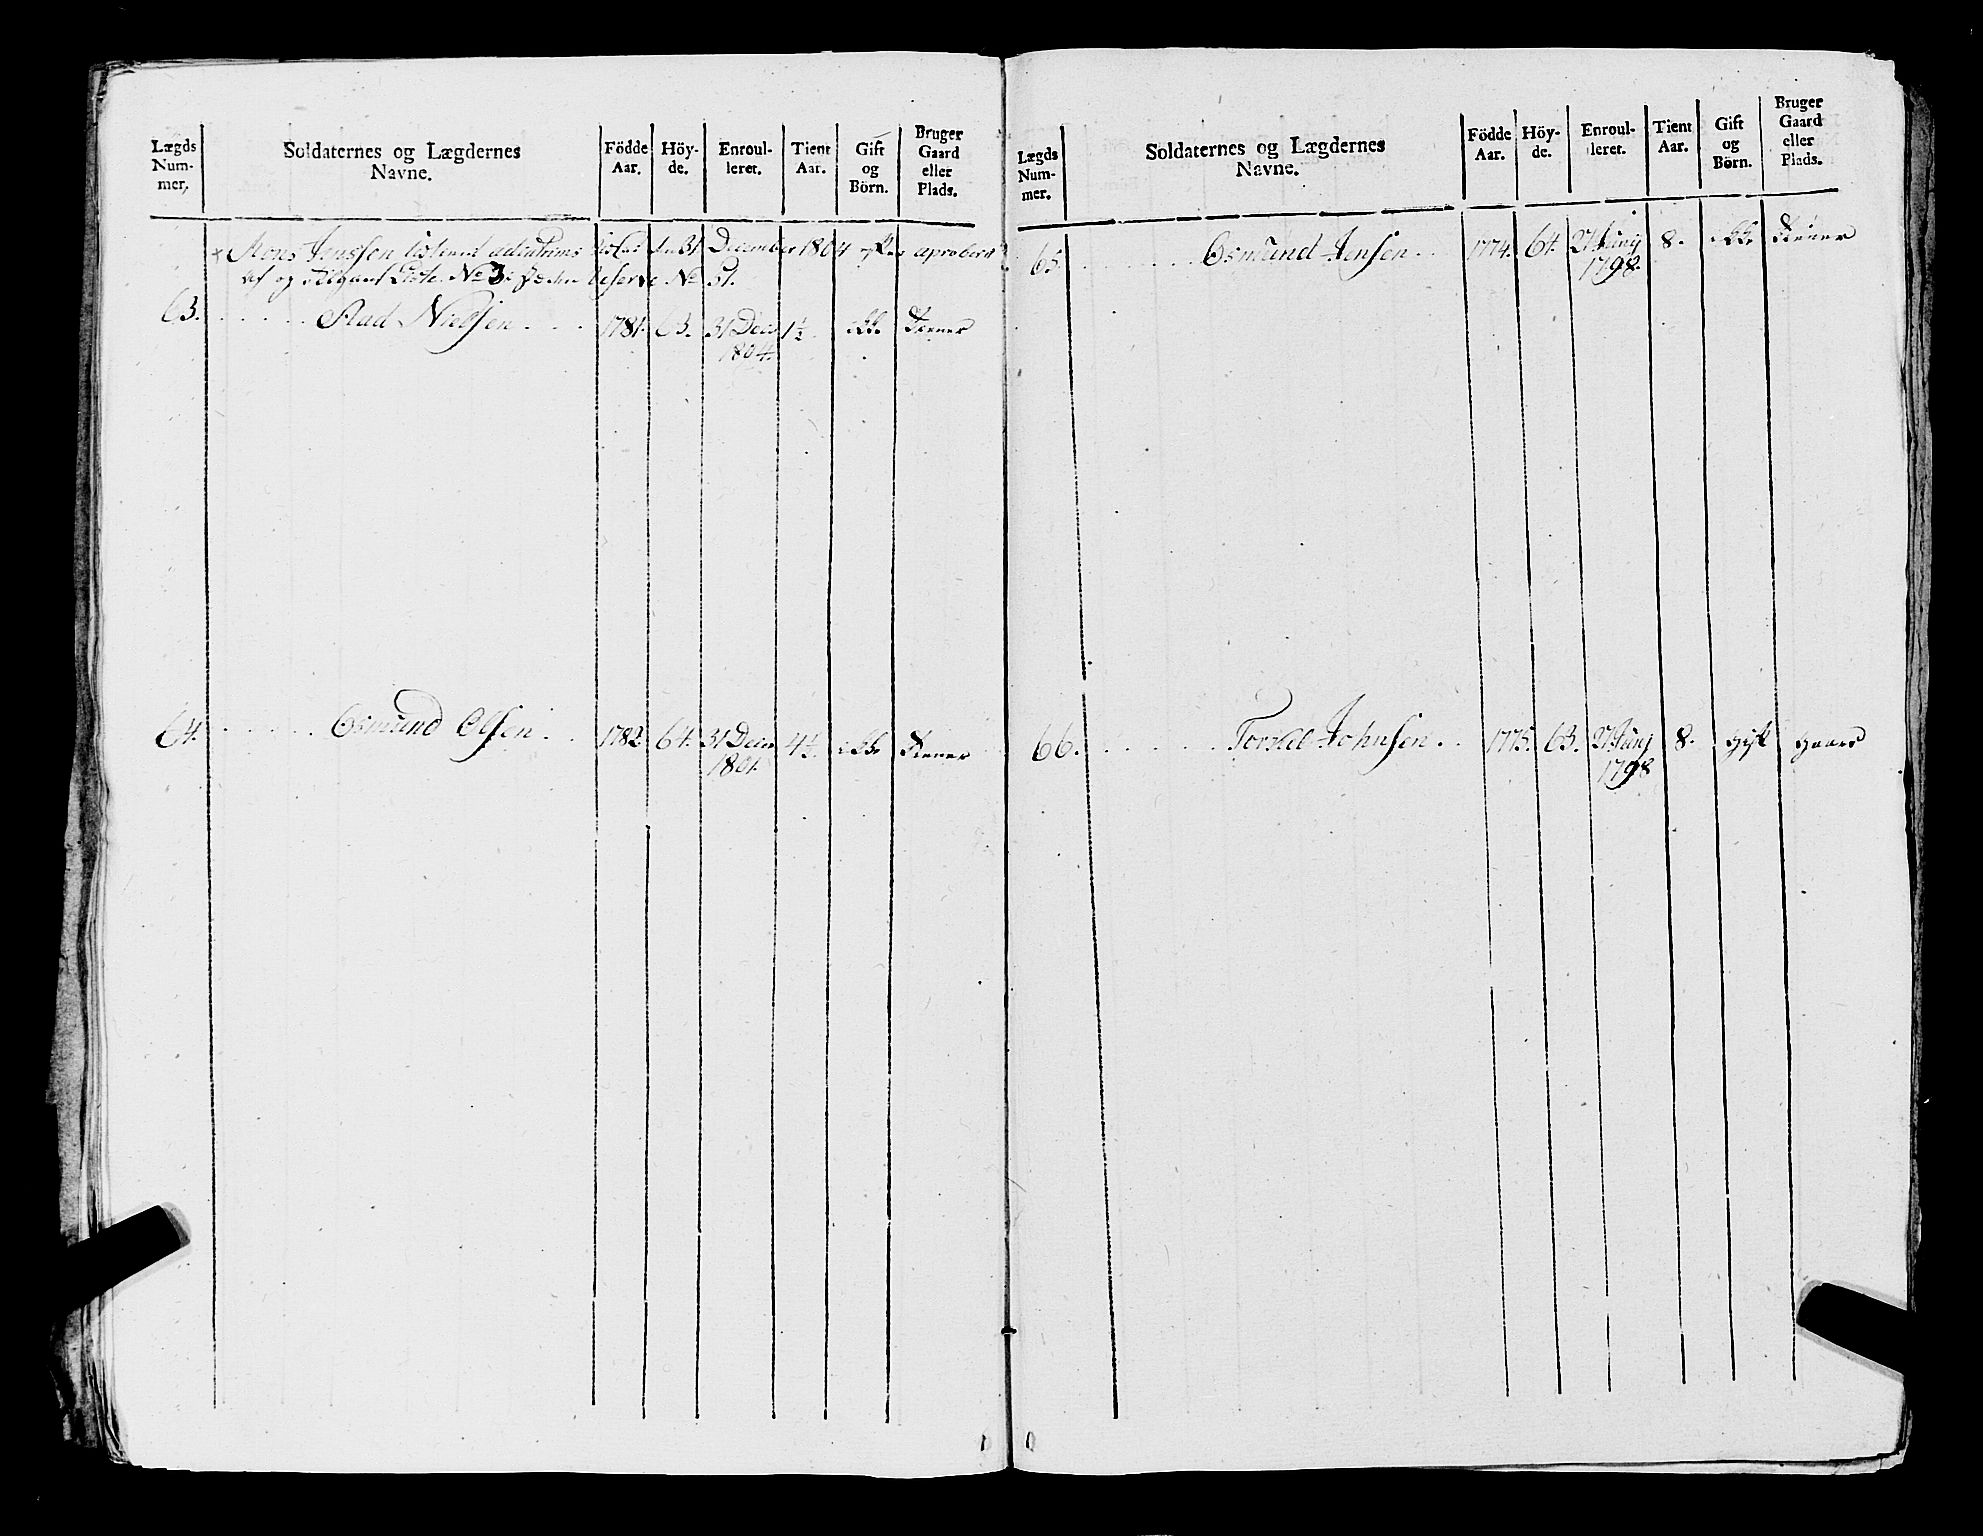 Lægds Num- mer,
Soldaternes og Lægdernes Navne.
Födde Aar.
Höy- de.
Enroul- leret.
Tient Aar.
Gift og Börn.
Bruger Gaard eller Plads.
Mons Jenssen den 31 December 1804 aproberet
af og Liste No 3 Reserve No 51.
63. Aad Nielsen 1781. 63. 31 Decr 1½ ikke tiener
1804.
64. Osmund Olsen 1782. 64. 31 Decr 4½ ikke tiener
1801.
Lægds Num- mer.
Soldaternes og Lægdernes Navne.
Födde Aar.
Höy- de.
Enroul- leret.
Tient Aar.
Gift og Börn.
Bruger Gaard eller Plads.
65. Osmund Jensen 1774. 64. 27 Junij 8. ikke tiener
1798.
66. Torkel Johnsen 1775. 63. 27 Junij 8. gift gaard
1798